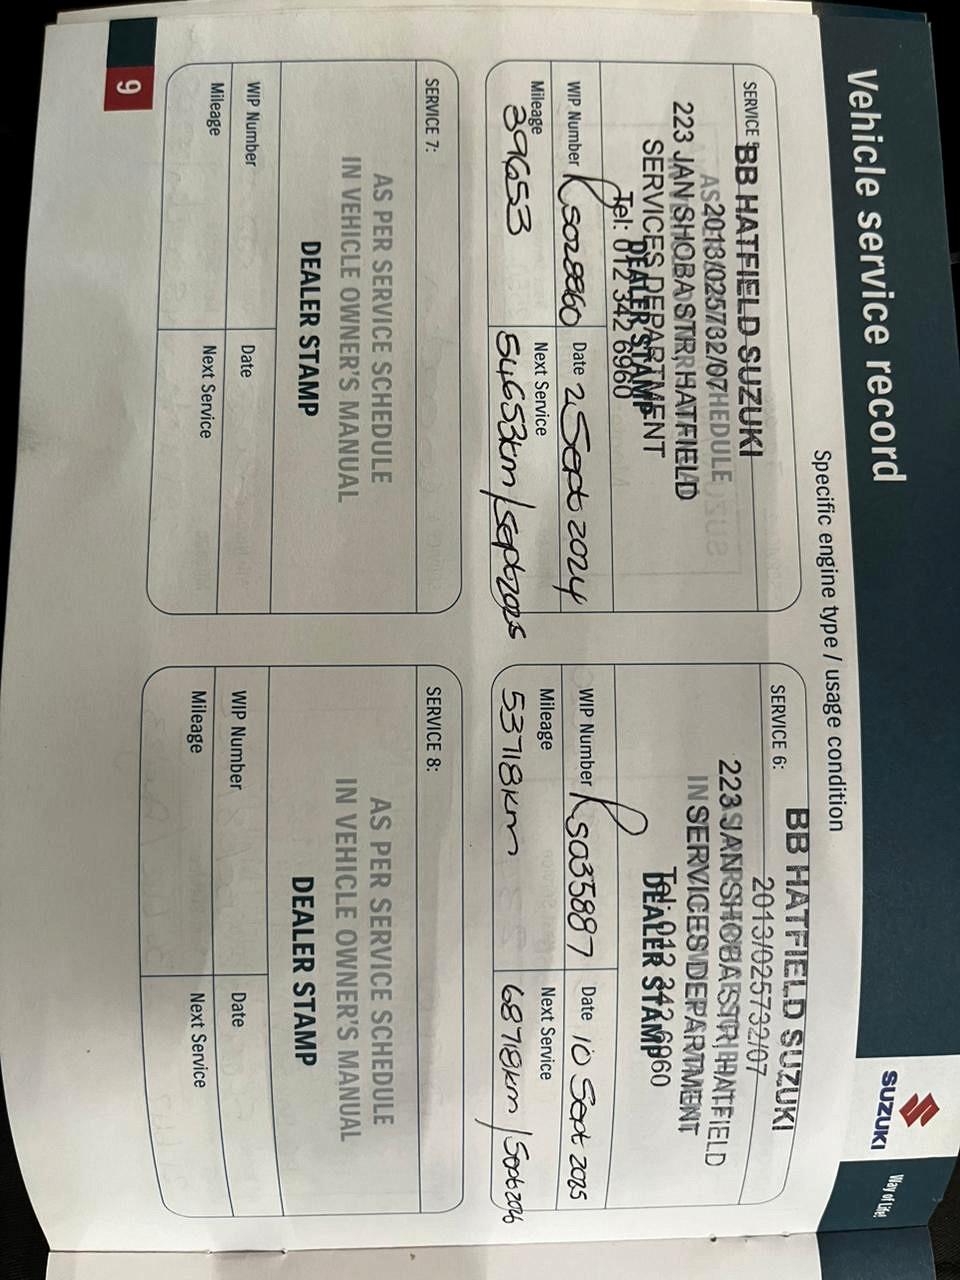 Vehicle service record
SUZUKI
Way of Life!
Specific engine type / usage condition
SERVICE
BB HATFIELD SUZUKI
2013/025732/07
223 JAN SHOBA STR, HATFIELD
SERVICES DEPARTMENT
Tel: 012 342 6960
DEALER STAMP
WIP Number Rso28860
Date 2 Sept 2024
Mileage 39653
Next Service 54653km / Sept 2025
SERVICE 6:
BB HATFIELD SUZUKI
2013/025732/07
223 JAN SHOBA STR, HATFIELD
SERVICES DEPARTMENT
Tel: 012 342 6960
DEALER STAMP
WIP Number Rso35887
Date 10 Sept 2025
Mileage 53718km
Next Service 68718km / Sept 2026
SERVICE 7:
AS PER SERVICE SCHEDULE
IN VEHICLE OWNER'S MANUAL
DEALER STAMP
WIP Number
Date
Mileage
Next Service
SERVICE 8:
AS PER SERVICE SCHEDULE
IN VEHICLE OWNER'S MANUAL
DEALER STAMP
WIP Number
Date
Mileage
Next Service
9